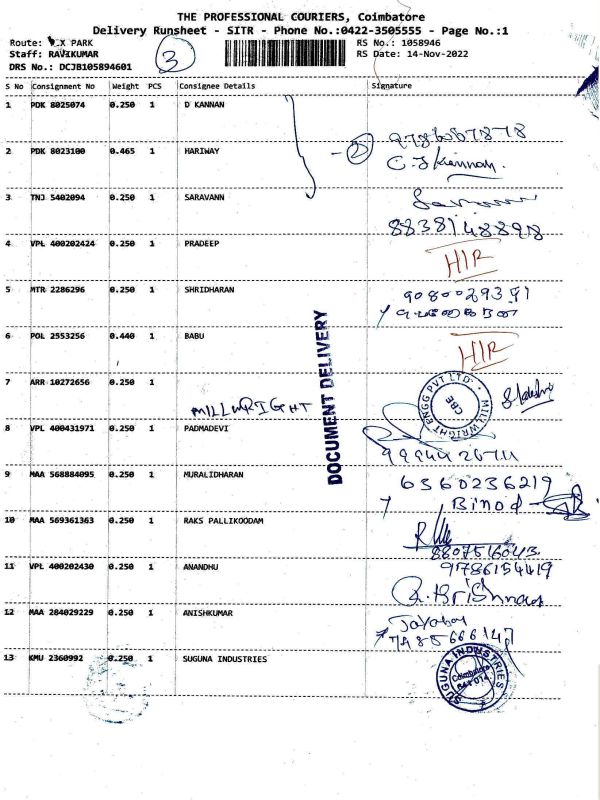 THE PROFESSIONAL COURIERS, Coimbatore
Delivery Runsheet - SITR - Phone No.:0422-3505555 - Page No.:1
Route: PARK
RS No.: 1058946
Staff: RAVIKUMAR
RS Date: 14-Nov-2022
DRS No.: DCJB105894601
3
S No Consignment No Weight PCS Consignee Details Signature
1 PDK 8025074 0.250 1 D KANNAN
2 PDK 8023100 0.465 1 HARIWAY
2
3 TNJ 5402094 0.250 1 SARAVANN
8838148898
4 VPL 400202424 0.250 1 PRADEEP
HIR
5 MTR 2286296 0.250 1 SHRIDHARAN
6 POL 2553256 0.440 1 BABU
HIR
7 ARR 10272656 0.250 1
MILLWRIGHT
MILL WRIGHT ENGG PVT LTD.
CBE
8 VPL 400431971 0.250 1 PADMADEVI
DOCUMENT DELIVERY
9 MAA 568884095 0.250 1 MURALIDHARAN
6360236219
Binod
10 MAA 569361363 0.250 1 RAKS PALLIKOODAM
8807516043
11 VPL 400202430 0.250 1 ANANDHU
9786154419
R. Krishnan
12 MAA 284029229 0.250 1 ANISHKUMAR
13 KMU 2360992 0.250 1 SUGUNA INDUSTRIES
SUGUNA INDUSTRIES
Coimbatore
641 014